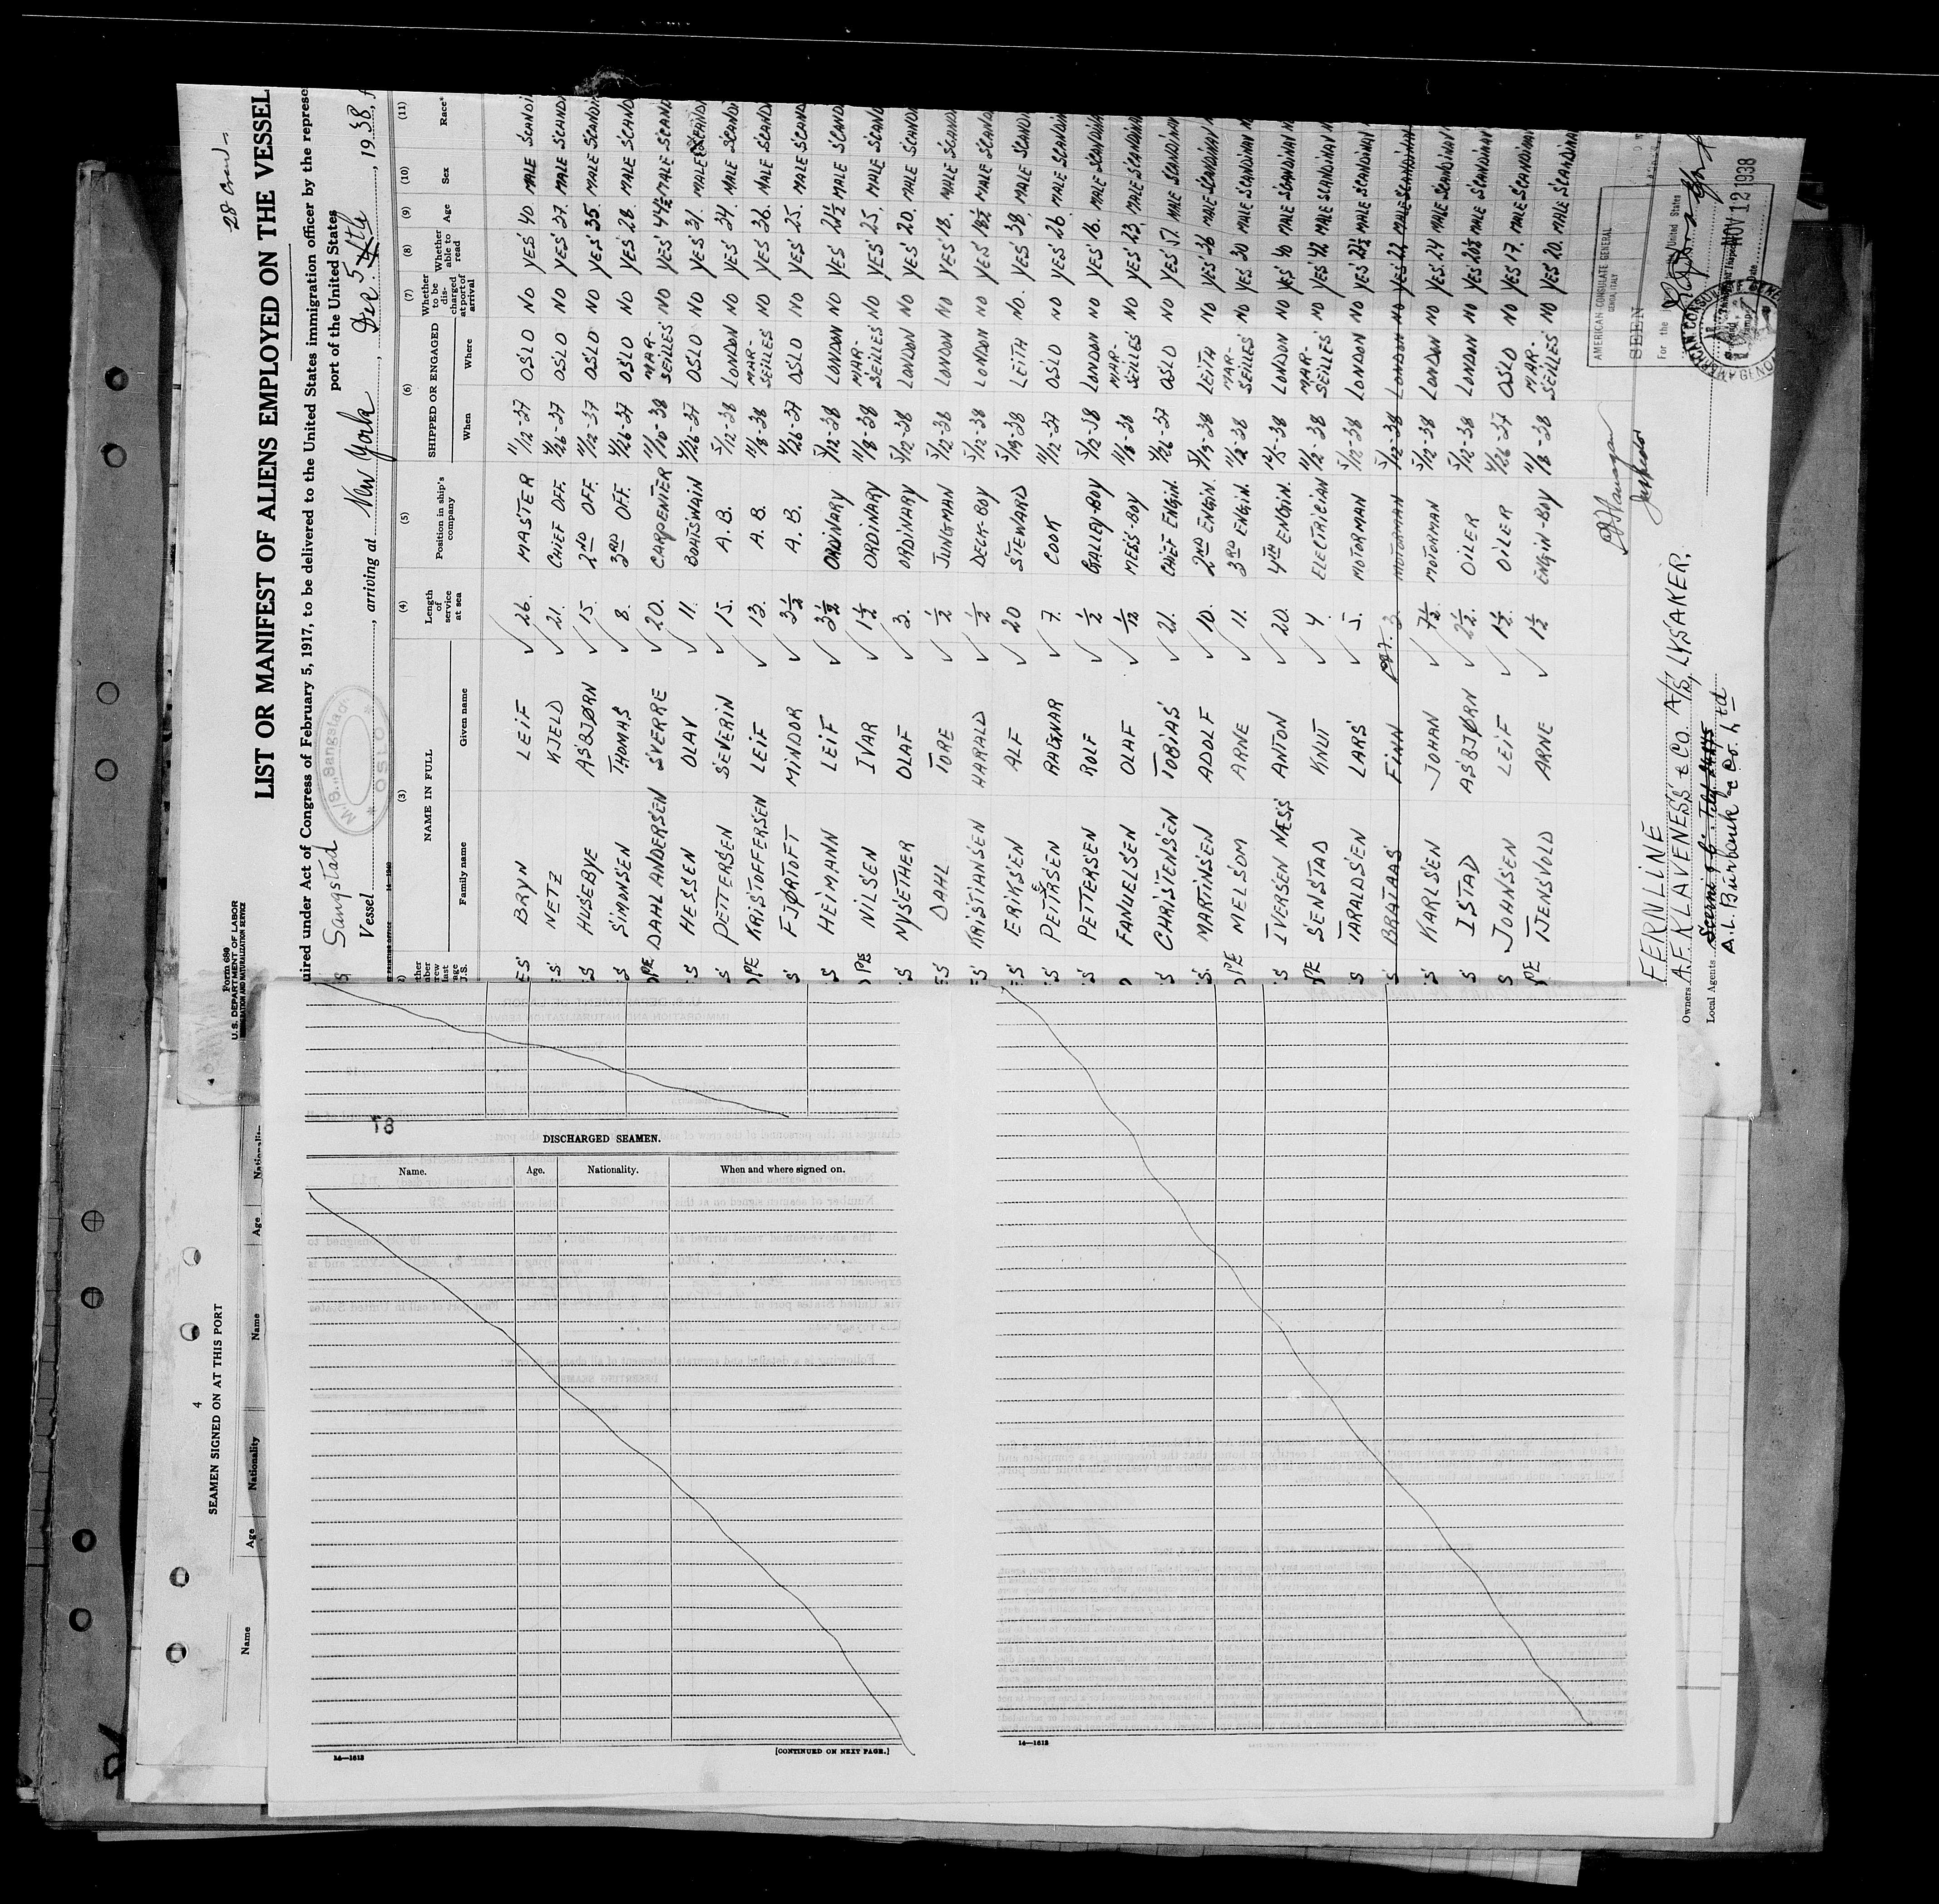 28 Crew
Form 680
U. S. DEPARTMENT OF LABOR
IMMIGRATION AND NATURALIZATION SERVICE
LIST OR MANIFEST OF ALIENS EMPLOYED ON THE VESSEL
uired under Act of Congress of February 5, 1917, to be delivered to the United States immigration officer by the represe
port of the United States
Vessel Sangstad, arriving at New York, Dec 5, 1938, f
M/S. „Sangstad"
* OSLO *
(3) (4) (5) (6) (7) (8) (9) (10) (11)
NAME IN FULL
Family name Given name
Length of service at sea
Position in ship's company
SHIPPED OR ENGAGED
When Where
Whether to be discharged at port of arrival
Whether able to read
Age Sex Race*
ES BRYN LEIF 26. MASTER 11/12-37 OSLO NO YES 40. MALE SCANDI
ES NETZ KJELD 21. CHIEF OFF. 4/26-37 OSLO NO YES 37. MALE SCAND
S HUSEBYE ASBJØRN 15. 2ND OFF. 11/12-37 OSLO NO YES 35. MALE SCANDI
S SIMONSEN THOMAS 8. 3RD OFF. 4/26-37 OSLO NO YES 28. MALE SCAND
OPE DAHL ANDERSEN SVERRE 20. CARPENTER 11/10-38 MAR-SEILLES NO YES 44½ MALE SCAND
S HESSEN OLAV 11. BOATSWAIN 4/26-37 OSLO NO YES 31. MALE SCANDI
S PETTERSEN SEVERIN 15. A. B. 5/12-38 LONDON NO YES 34. MALE SCANDI
OPE KRISTOFFERSEN LEIF 13. A. B. 11/8-38 MAR-SEILLES NO YES 36. MALE SCAND
S FJØRTOFT MINDOR 3½ A. B. 4/26-37 OSLO NO YES 25. MALE SCAND
S HEIMANN LEIF 3½ ORDINARY 5/12-38 LONDON NO YES 21½ MALE SCAND
OPE NILSEN IVAR 1½ ORDINARY 11/8-38 MAR-SEILLES NO YES 25, MALE SCAND
S NYSETHER OLAF 3. ORDINARY 5/12-38 LONDON NO YES 20, MALE SCAND
ES DAHL TORE ½ JUNGMAN 5/12-38 LONDON NO YES 18. MALE SCAND
ES KRISTIANSEN HARALD ½ DECK-BOY 5/12-38 LONDON NO YES MALE SCAND
ES ERIKSEN ALF 20 STEWARD 5/19-38 LEITH NO. YES 38, MALE SCAND
S PETTRSEN RAGNAR 7. COOK 11/12-37 OSLO NO YES 26. MALE SCANDI
S PETTERSEN ROLF ½ GALLEY-BOY 5/12-38 LONDON NO YES 16. MALE SCANDINA
FANUELSEN OLAF 1/12 MESS-BOY 11/8-38 MAR-SEILLES NO YES 23, MALE SCANDINA
S CHRISTENSEN TOBIAS 21. CHIEF ENGIN. 4/26-37 OSLO NO YES 51. MALE SCANDINAV
S. MARTINSEN ADOLF 10. 2ND ENGIN. 5/19-38 LEITH NO YES 36 MALE SCANDINAV
OPE MELSOM ARNE 11. 3RD ENGIN. 11/2-38 MAR-SEILLES NO YES 30 MALE SCANDINAV
S IVERSEN NÆSS ANTON 20. 4TH ENGIN. LONDON NO YES 40 MALE SCANDINAV
OPE SENSTAD KNUT 4. ELECTRICIAN 11/2-38 MAR-SEILLES NO YES 42 MALE SCANDINAV
S TARALDSEN LARS 5. MOTORMAN 5/12-38 LONDON NO YES 22½ MALE SCANDINAV
S BRATAAS FINN 3. MOTORMAN 5/12-38 LONDON NO YES 22 MALE SCANDINAV
S KARLSEN JOHAN 7½ MOTORMAN 5/12-38 LONDON NO YES 24 MALE SCANDINAV
S ISTAD ASBJØRN 2½ OILER 5/12-38 LONDON NO YES 20½ MALE SCANDINAV
S JOHNSEN LEIF 1½ OILER 4/26-37 OSLO NO YES 17. MALE SCANDINAV
OPE TJENSVOLD ARNE 1½ ENGIN-BOY 11/8-38 MAR-SEILLES NO YES 20. MALE SCANDINA
Inspector
FERNLINE
Owners A. F. KLAVENESS & CO. A/S, LYSAKER.
Local Agents
A. L. Burbank & Co. Ltd
AMERICAN CONSULATE GENERAL
GENOA, ITALY
SEEN
For the United States
NOV 12 1938
SEAMEN SIGNED ON AT THIS PORT
4
Name Age Nationality Name Age Nationality
18
DISCHARGED SEAMEN.
Name. Age. Nationality. When and where signed on.
14—1613
[CONTINUED ON NEXT PAGE.]
14—1613